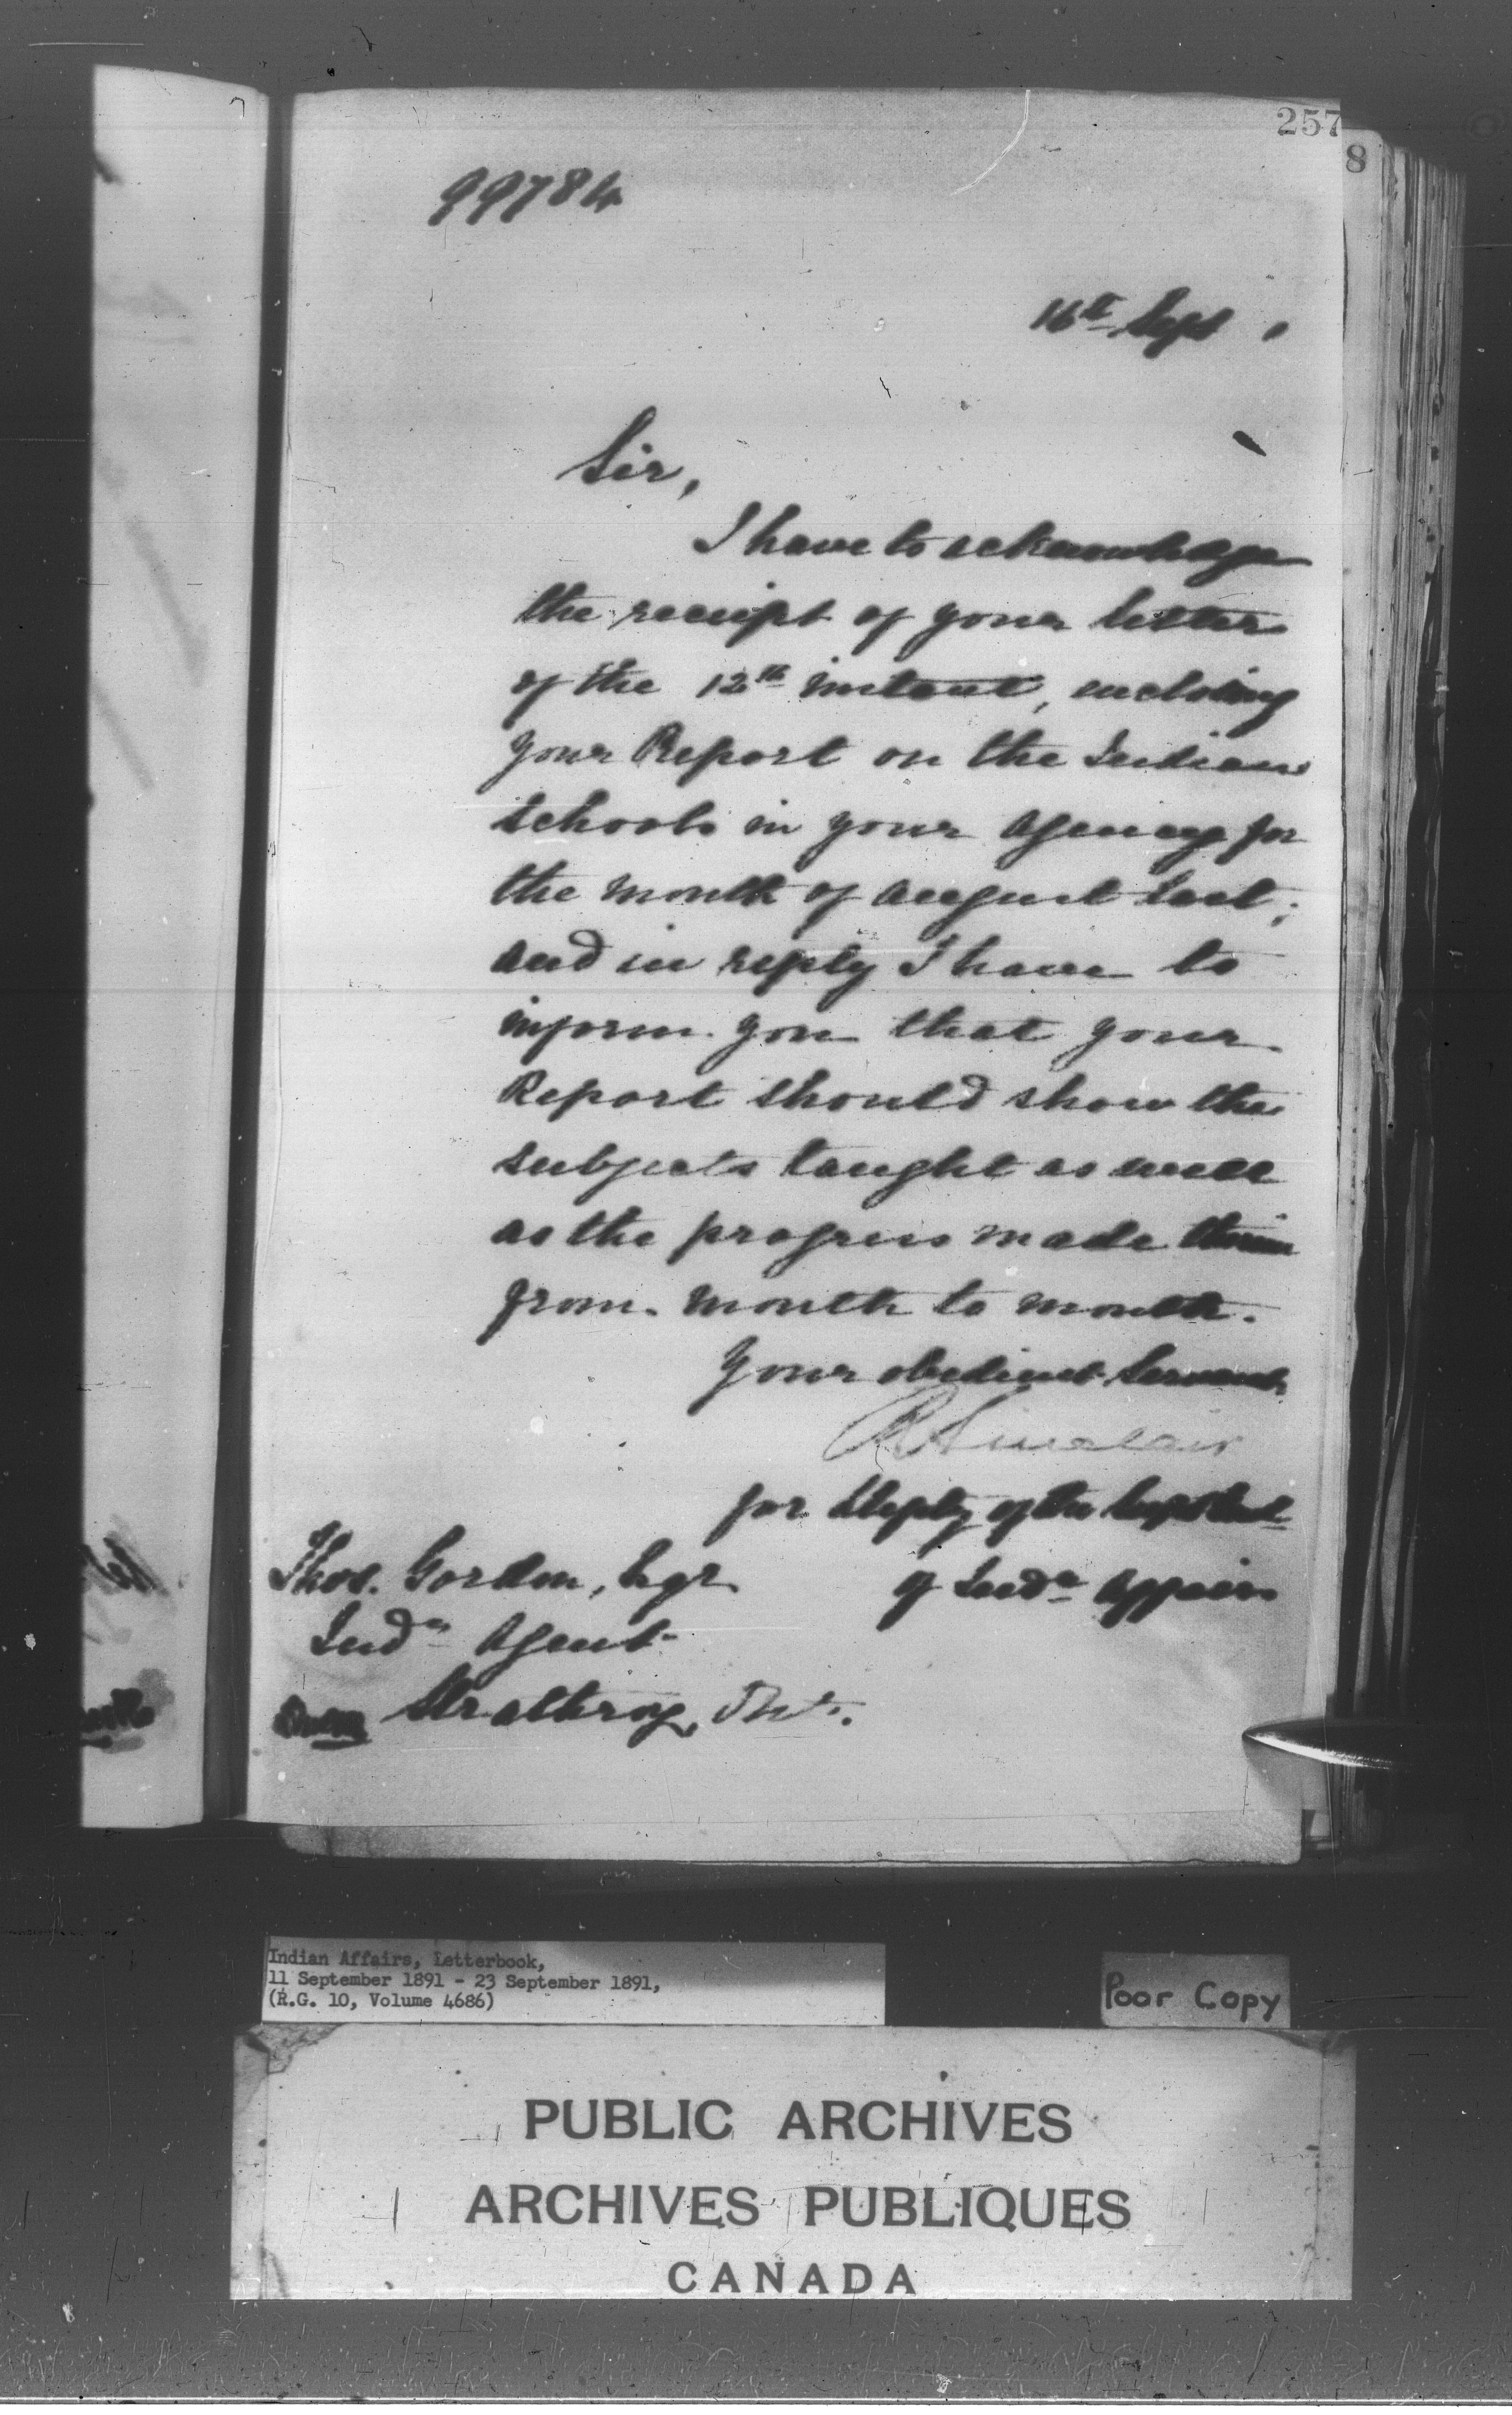 257
8
99784
16th Sept 1
Sir,
I have to acknowledge
the receipt of your letter
of the 12th instant, enclosing
your Report on the Indian
schools in your Agency for
the month of August last;
and in reply I have to
inform you that your
Report should show the
subjects taught as well
as the progress made therein
from month to month.
Your obedient Servant
R Sinclair
for Deputy of the Supt Genl
of Indn Affairs
Thos. Gordon, Esqr
Indn Agent
Strathroy, Ont.
Indian Affairs, Letterbook,
11 September 1891 - 23 September 1891,
(R.G. 10, Volume 4686)
Poor Copy
PUBLIC ARCHIVES
ARCHIVES PUBLIQUES
CANADA